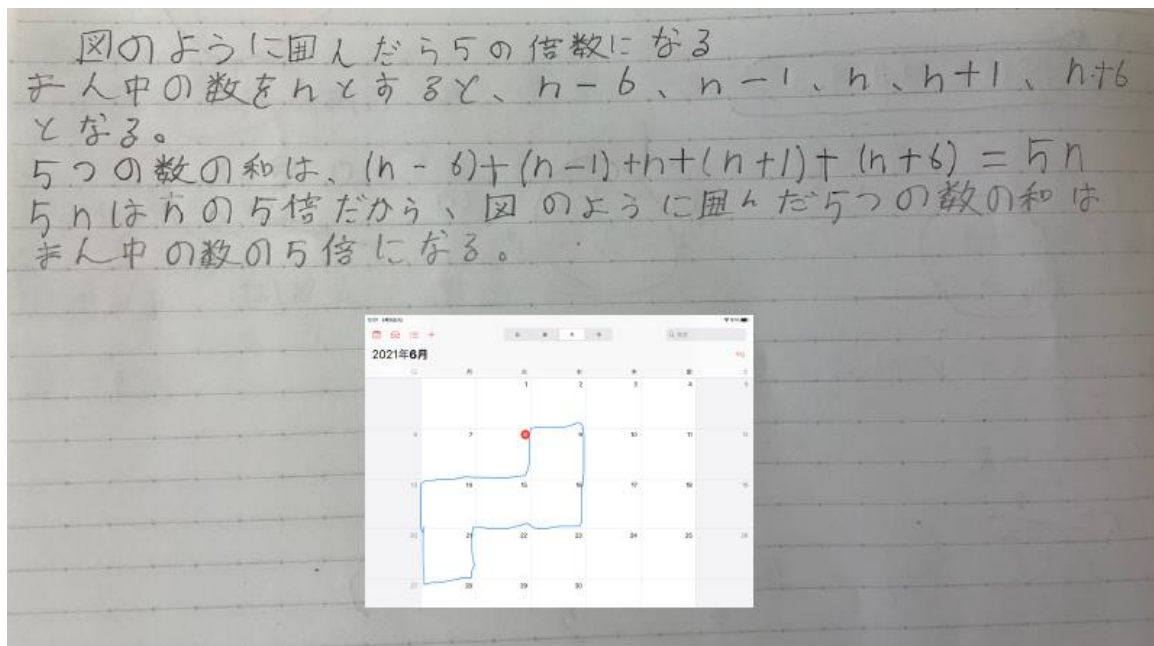 図のように囲んだら5の倍数になる
まん中の数をnとすると、n-6、n-1、n、n+1、n+6
となる。
5つの数の和は、(n-6)+(n-1)+n+(n+1)+(n+6)=5n
5nはnの5倍だから、図のように囲んだ5つの数の和は
まん中の数の5倍になる。
2021年6月
月 火 水 木 金 土
1 2 3 4 5
6 7 8 9 10 11 12
13 14 15 16 17 18 19
20 21 22 23 24 25 26
27 28 29 30